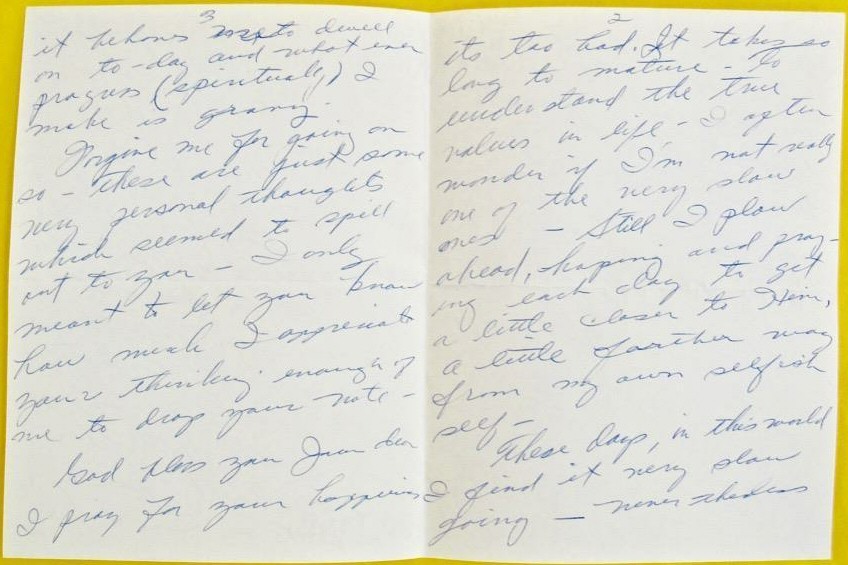 2
its too bad. It takes so
long to mature - To
understand the true
values in life - I often
wonder if I'm not really
one of the very slow
ones - Still I plow
ahead, hoping and pray-
ing each day to get
a little closer to Him,
a little farther way
from my own selfish
self -
These days, in this world
I find it very slow
going — never the less
3
it behoves to dwell
on to-day and what ever
progress (spiritually) I
make is gravy.
Forgive me for going on
so - these are just some
very personal thoughts
which seemed to spill
out to you - I only
meant to let you know
how much I appreciate
your thinking enough of
me to drop your note -
God bless you dear
I pray for your happiness